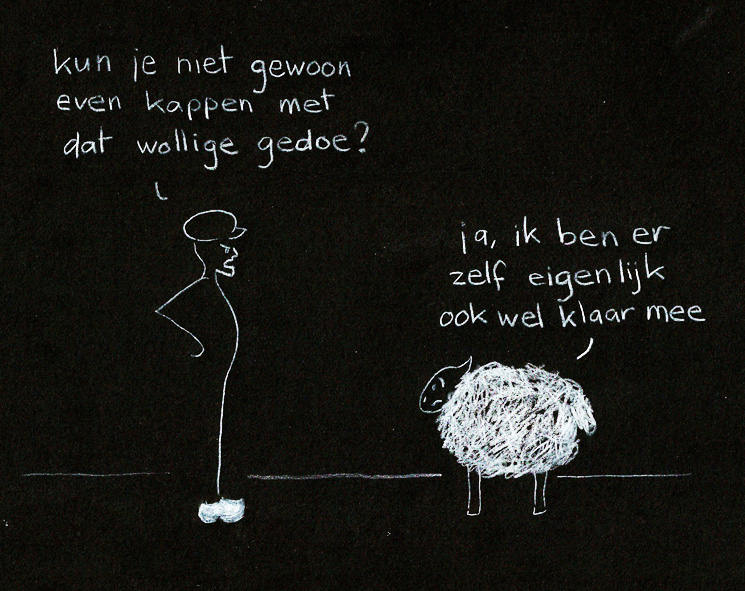 kun je niet gewoon
even kappen met
dat wollige gedoe?
ja, ik ben er
zelf eigenlijk
ook wel klaar mee